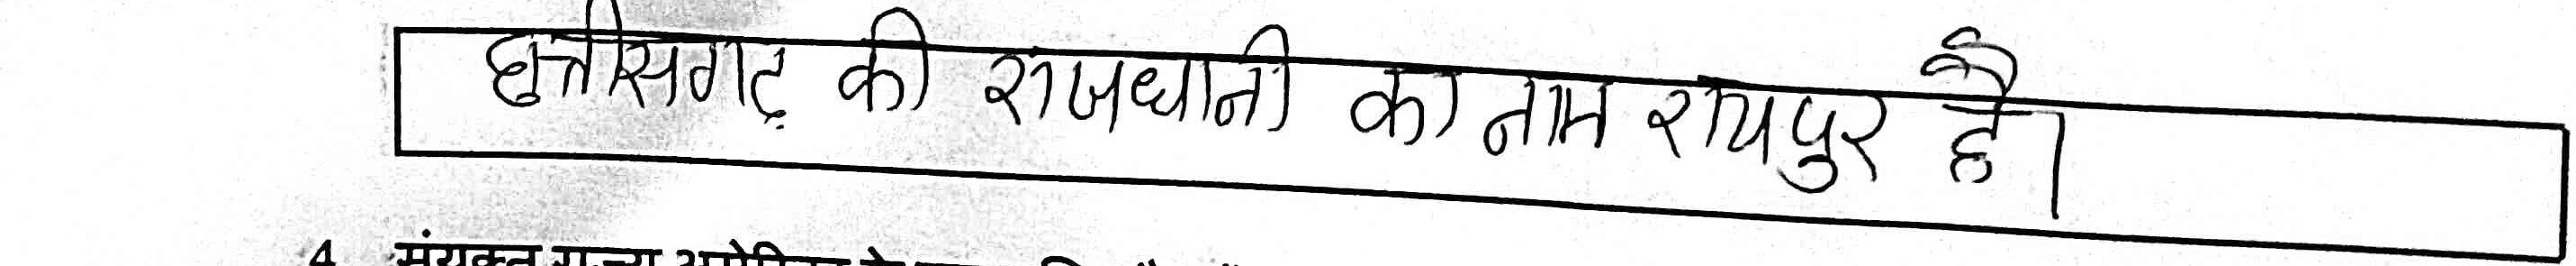 छत्तीसगढ़ की राजधानी का नाम रायपुर है।
4. संयुक्त राज्य